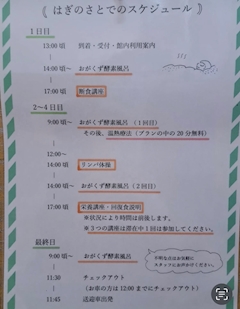 はぎのさとでのスケジュール
1日目
13:00 頃 到着・受付・館内利用案内
14:00 頃 おがくず酵素風呂
17:00 頃 断食講座
2~4日目
9:00 頃~ おがくず酵素風呂（1回目）
その後、温熱療法（プランの中の20分無料）
12:00~
14:00 頃 リンパ体操
14:00 頃~ おがくず酵素風呂（2回目）
17:00 頃 栄養講座・回復食説明
※状況により時間は前後します。
※3つの講座は滞在中1回は参加してください。
最終日
9:00 頃~ おがくず酵素風呂
不明な点はお気軽に
スタッフにおたずねください。
11:30 チェックアウト
（お車の方は12:00までにチェックアウト）
11:45 送迎車出発